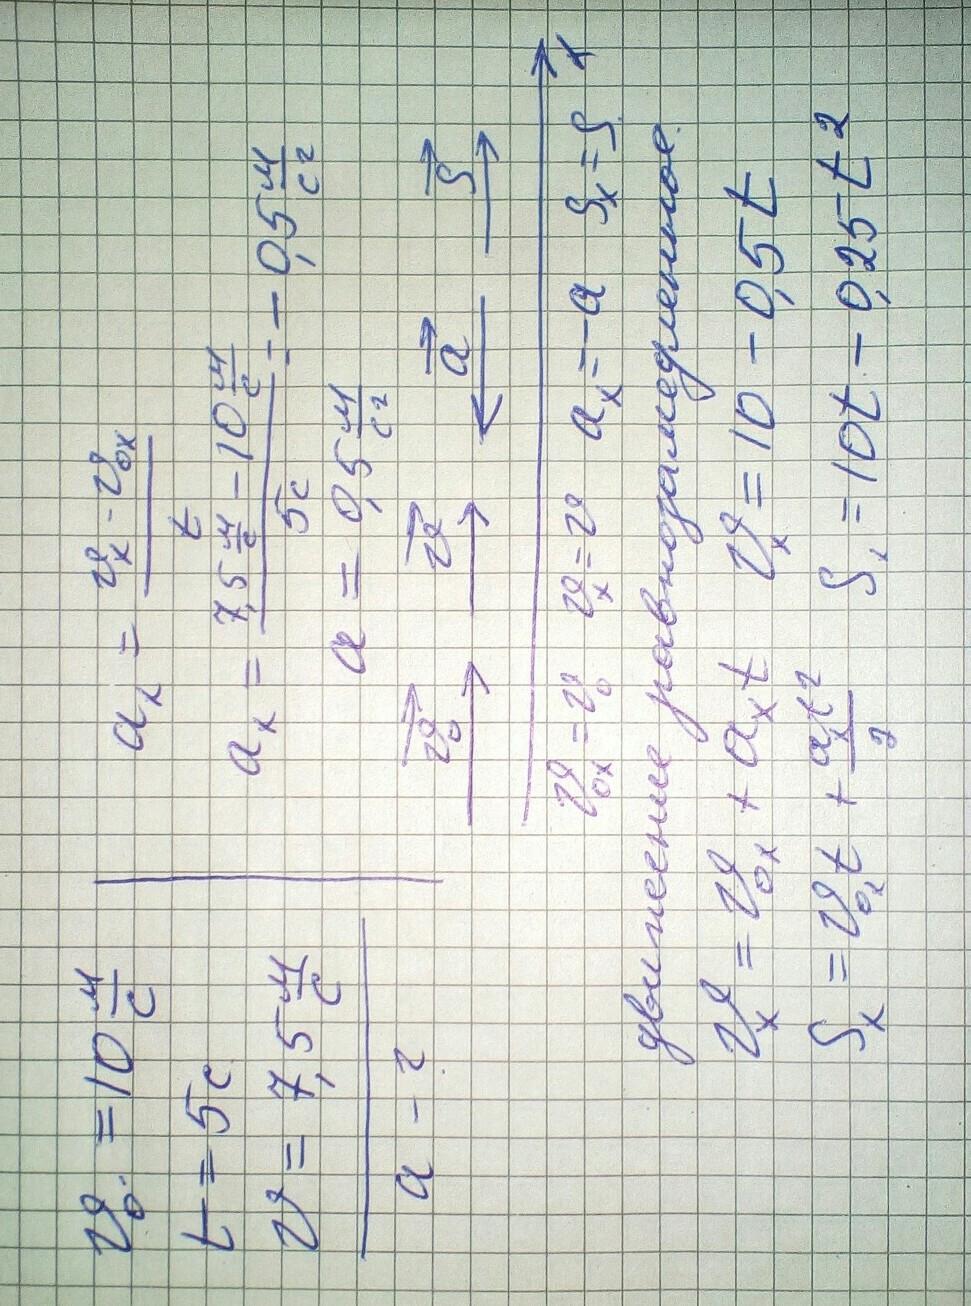 v₀ = 10 м/с
t = 5с
v = 7,5 м/с
a - ?
aₓ = (vₓ - v₀ₓ)/t
aₓ = (7,5 м/с - 10 м/с)/5с = - 0,5 м/с²
a = 0,5 м/с²
v⃗₀ v⃗ a⃗ S⃗
x
v₀ₓ = v₀ vₓ = v aₓ = -a Sₓ = S
движение равнозамедленное.
vₓ = v₀ₓ + aₓt vₓ = 10 - 0,5t
Sₓ = v₀ₓt + aₓt²/2 Sₓ = 10t - 0,25t²